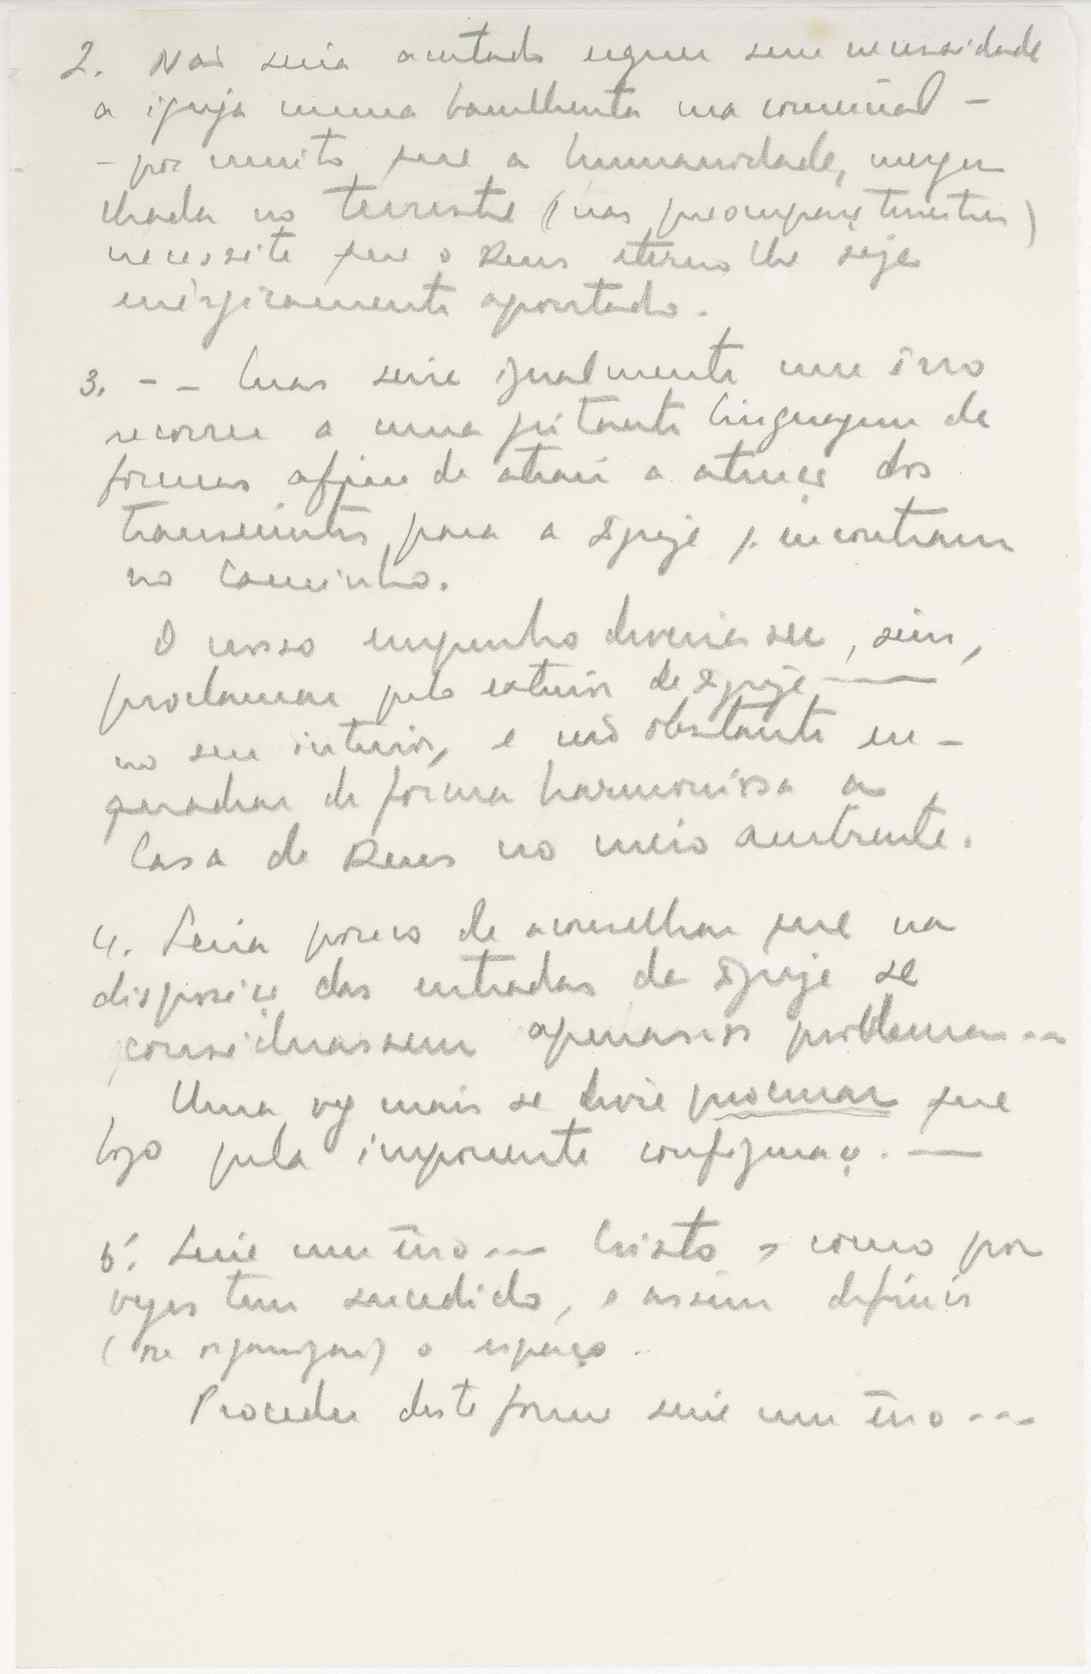 2. Não seria acertado erguer sem necessidade
a igreja numa barulhenta rua comercial –
– por muito que a humanidade, mergu
lhada no terrestre (nas preocupaçõ terrestres)
necessite que o Deus eterno lhe seja
enèrgicamente apontado.
3. – – Mas seria igualmente um êrro
recorrer a uma gritante linguagem de
formas afim de atrair a atenção dos
transeuntes para a Igreja q. encontram
no caminho.
O nosso empenho deveria ser, sim,
proclamar pelo exterior da Igreja ——
no seu interior, e não obstante en–
quadrar de forma harmoniosa a
Casa de Deus no meio ambiente.
4. Seria pouco de aconselhar que na
disposição das entradas da Igreja se
considerassem apenas os problemas ---
Uma vez mais se devia procurar que
logo pela imponente configuração. ——
5. Seria um êrro --- Cristo, como por
vezes tem sucedido, e assim definir
(ou organizar) o espaço.
Proceder desta forma seria um êrro ---